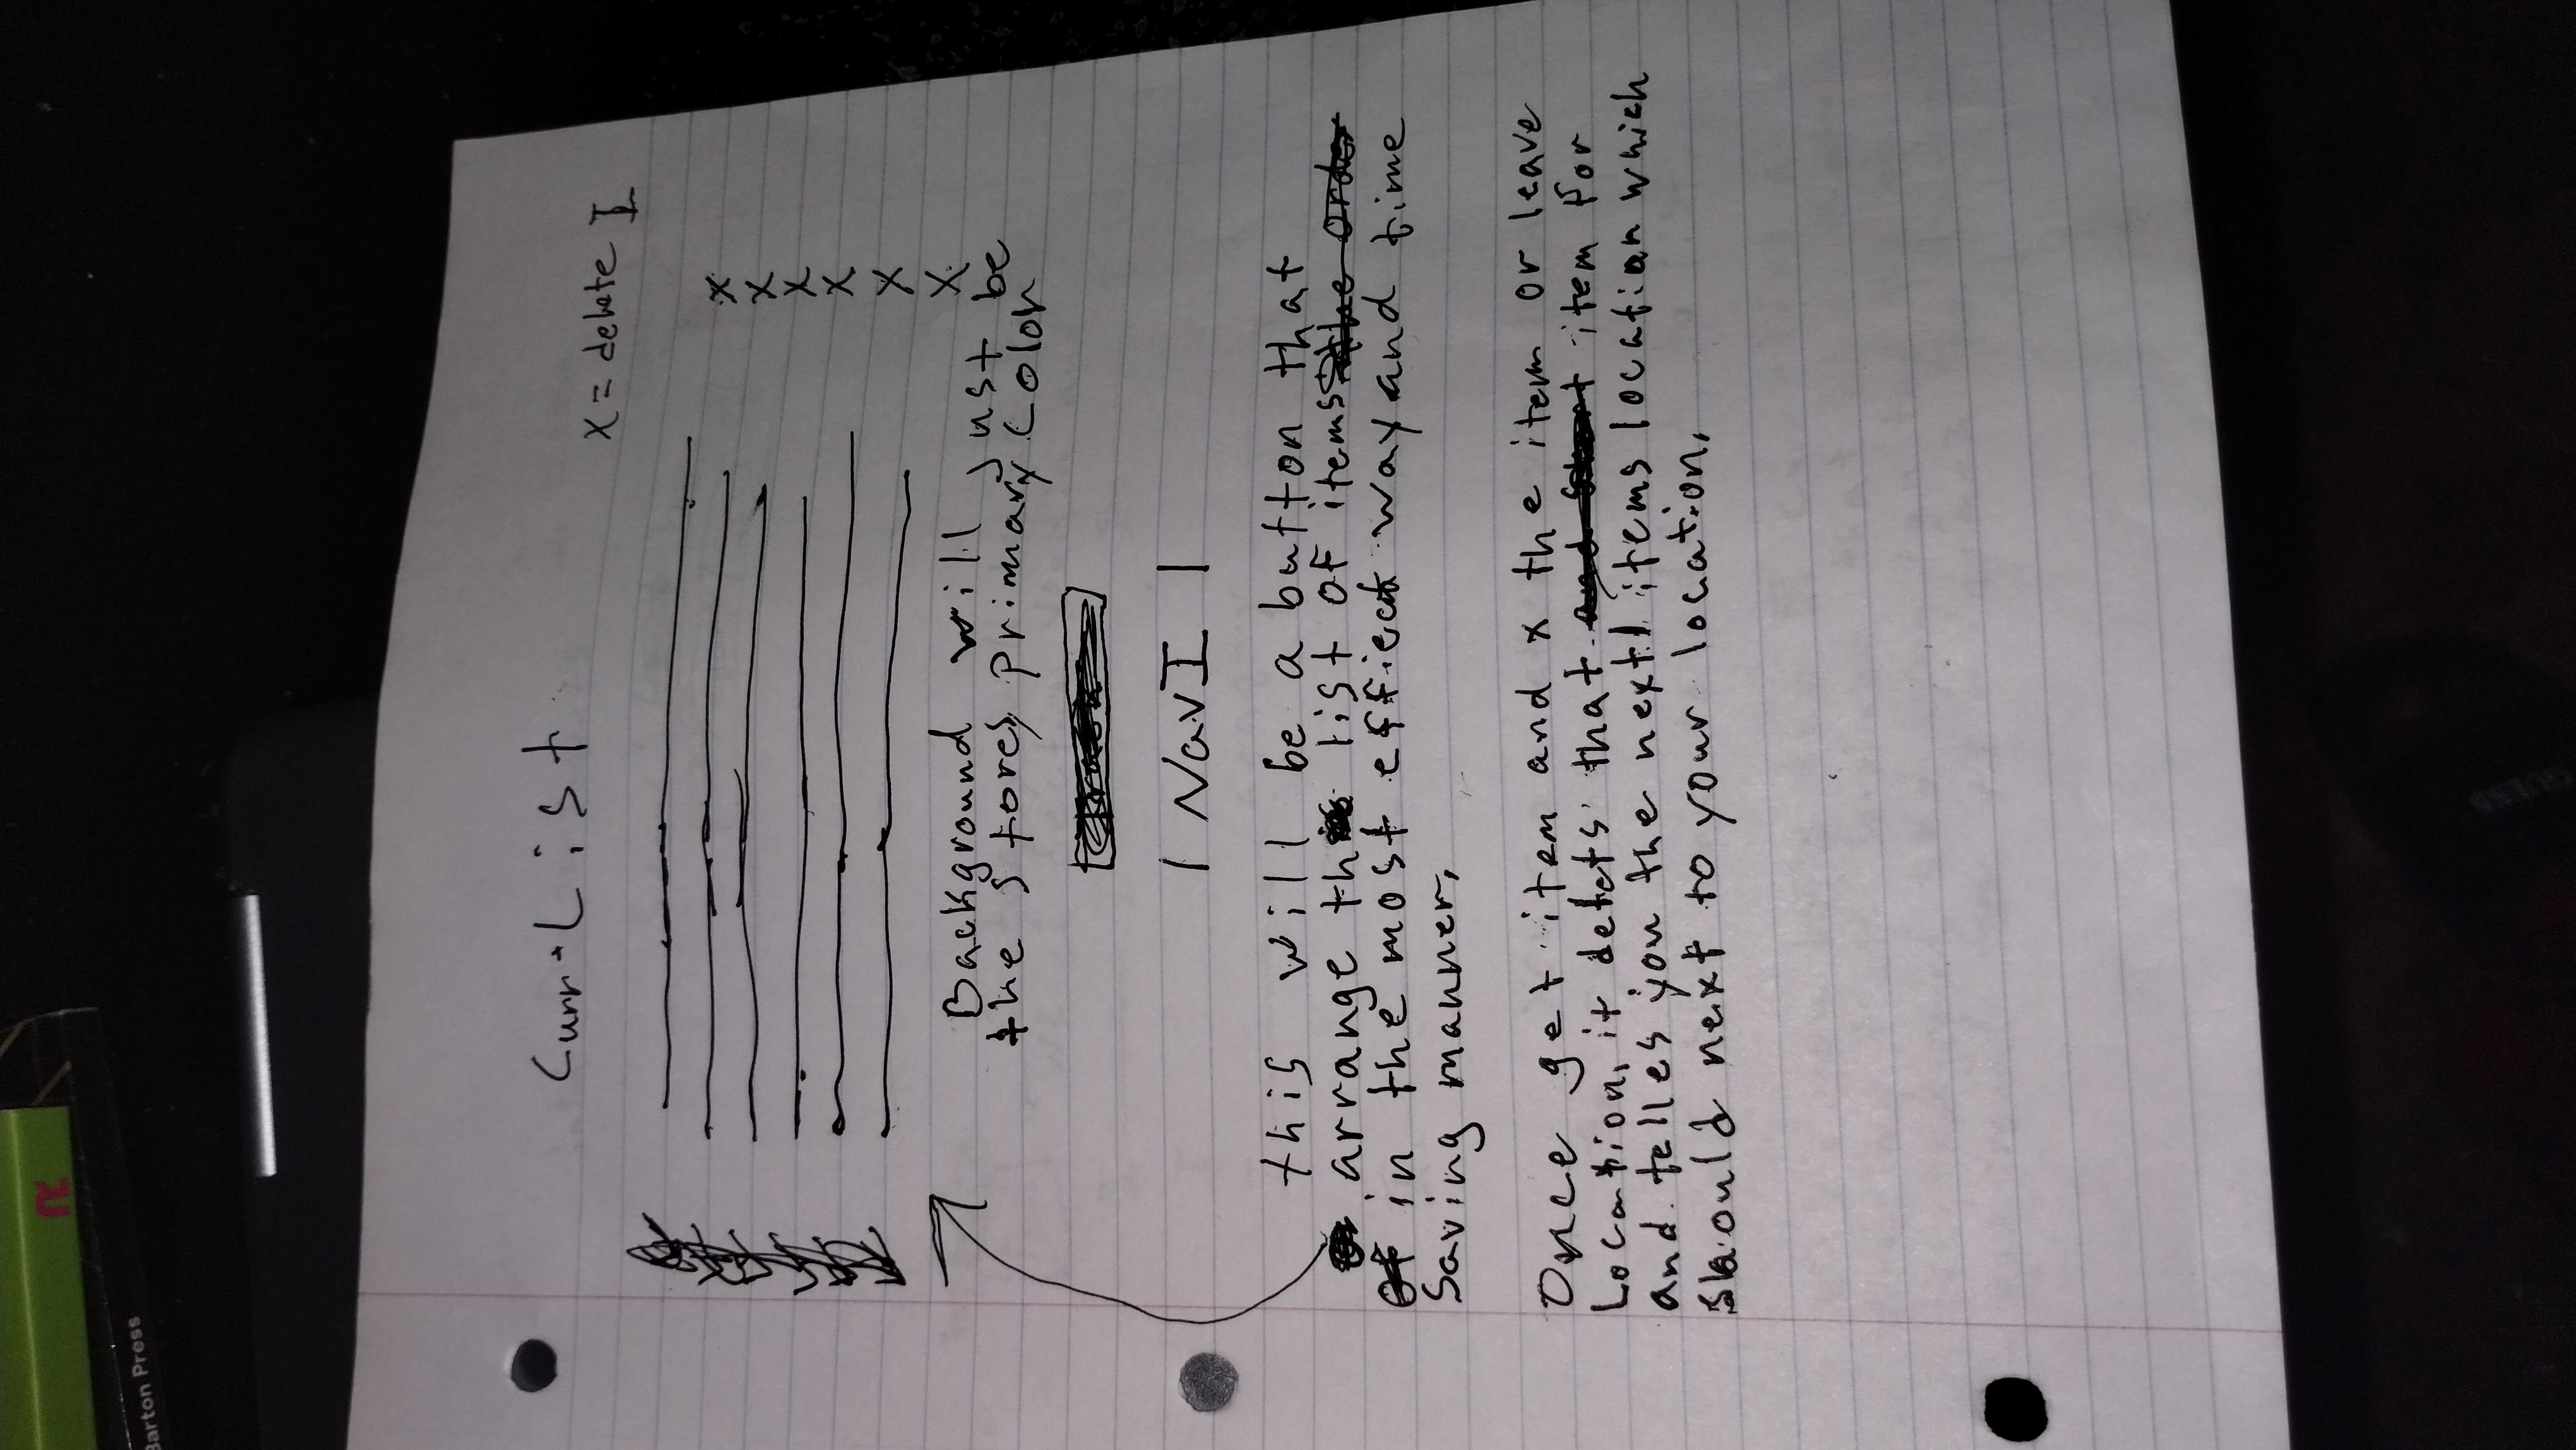 Barton Press
Curr-List
X = delete I
X
X
X
X
X
X
Background will just be
the stores primary color
| NavI |
this will be a button that
arrange th list of items
in the most effiect way and time
Saving manner.
Once get item and x the item or leave
Location, it detcts that item for
and telles you the next items location which
should next to your location.